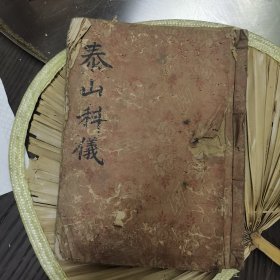 泰山科儀